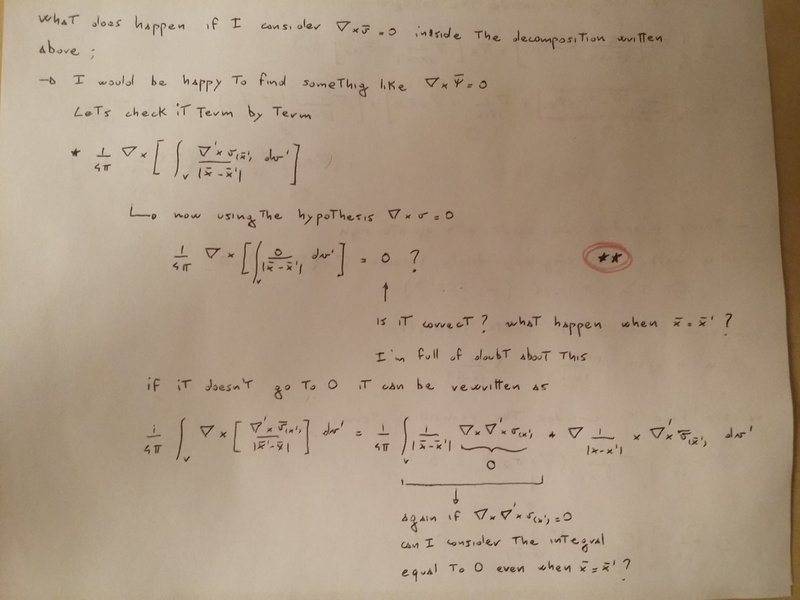 What does happen if I consider ∇×v̄=0 inside the decomposition written
above;
→ I would be happy to find somethig like ∇×Ψ̄=0
Lets check it term by term
* 1/4π ∇×[∫_V ∇'×v(x̄')/|x̄-x̄'| dv']
↳ now using the hypothesis ∇×v=0
1/4π ∇×[∫_V 0/|x̄-x̄'| dv'] = 0 ?
**
↑
is it correct? what happen when x̄=x̄' ?
I'm full of doubt about this
if it doesn't go to 0 it can be rewritten as
1/4π ∫_V ∇×[∇'×v̄(x')/|x̄'-x̄|] dv' = 1/4π ∫_V 1/|x̄-x̄'| ∇×∇'×v(x') + ∇ 1/|x-x'| × ∇'×v̄(x̄') dv'
0
↓
again if ∇×∇'×v(x')=0
can I consider the integral
equal to 0 even when x̄=x̄' ?